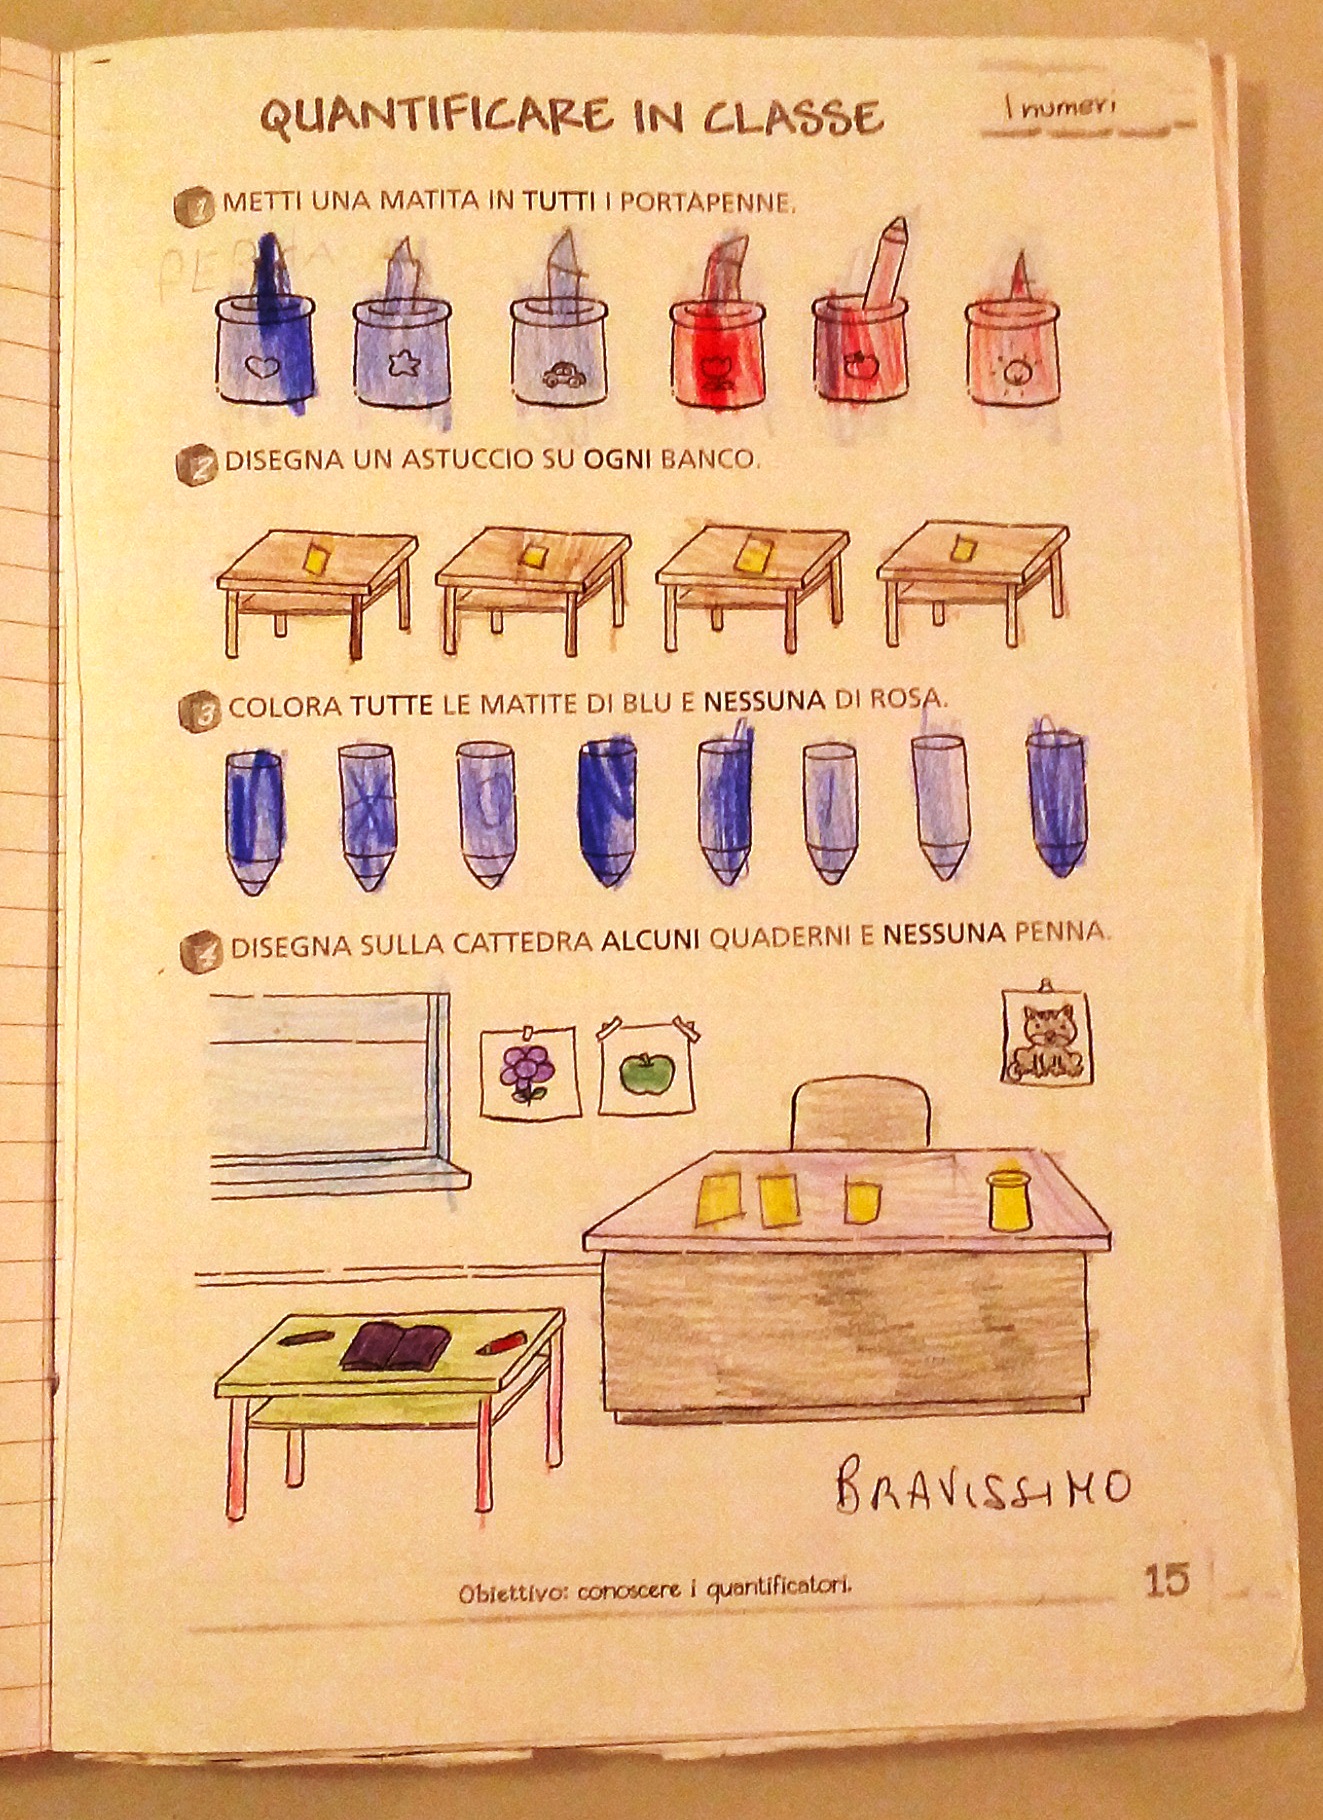 QUANTIFICARE IN CLASSE
I numeri
1 METTI UNA MATITA IN TUTTI I PORTAPENNE.
2 DISEGNA UN ASTUCCIO SU OGNI BANCO.
3 COLORA TUTTE LE MATITE DI BLU E NESSUNA DI ROSA.
4 DISEGNA SULLA CATTEDRA ALCUNI QUADERNI E NESSUNA PENNA.
BRAVISSIMO
Obiettivo: conoscere i quantificatori.
15